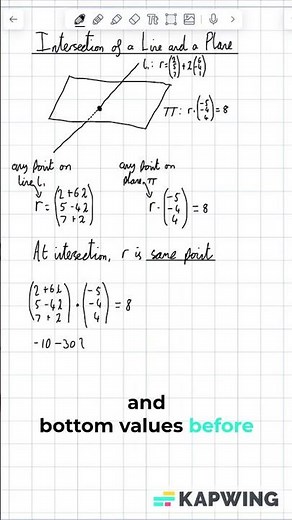 Intersection of a Line and a Plane
L₁: r = (2 5 7) + λ(6 -4 1)
Π: r · (-5 -4 4) = 8
any point on line L₁
any point on plane Π
r = (2+6λ 5-4λ 7+λ)
r · (-5 -4 4) = 8
At intesection, r is same point
(2+6λ 5-4λ 7+λ) · (-5 -4 4) = 8
-10 -30λ
and
bottom values before
KAPWING